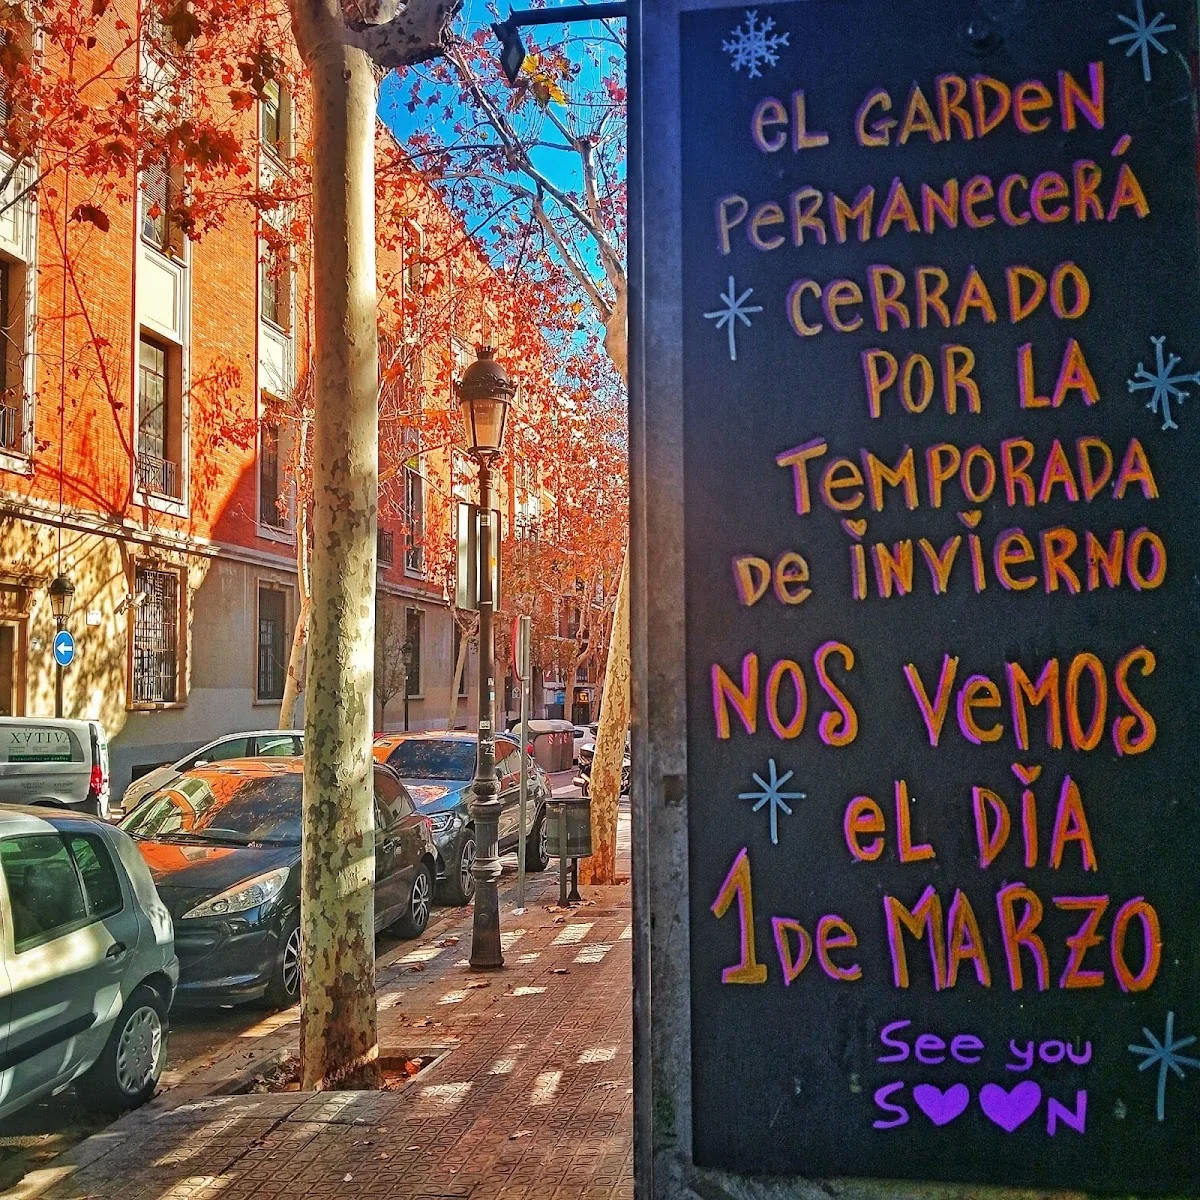 eL GARDeN
PeRMANeCeRÁ
CeRRADO
POR LA
TeMPORADA
De iNViERNO
NOS VeMOS
eL DiA
1 De MARZO
See you
S♥♥N
XÀTIVA